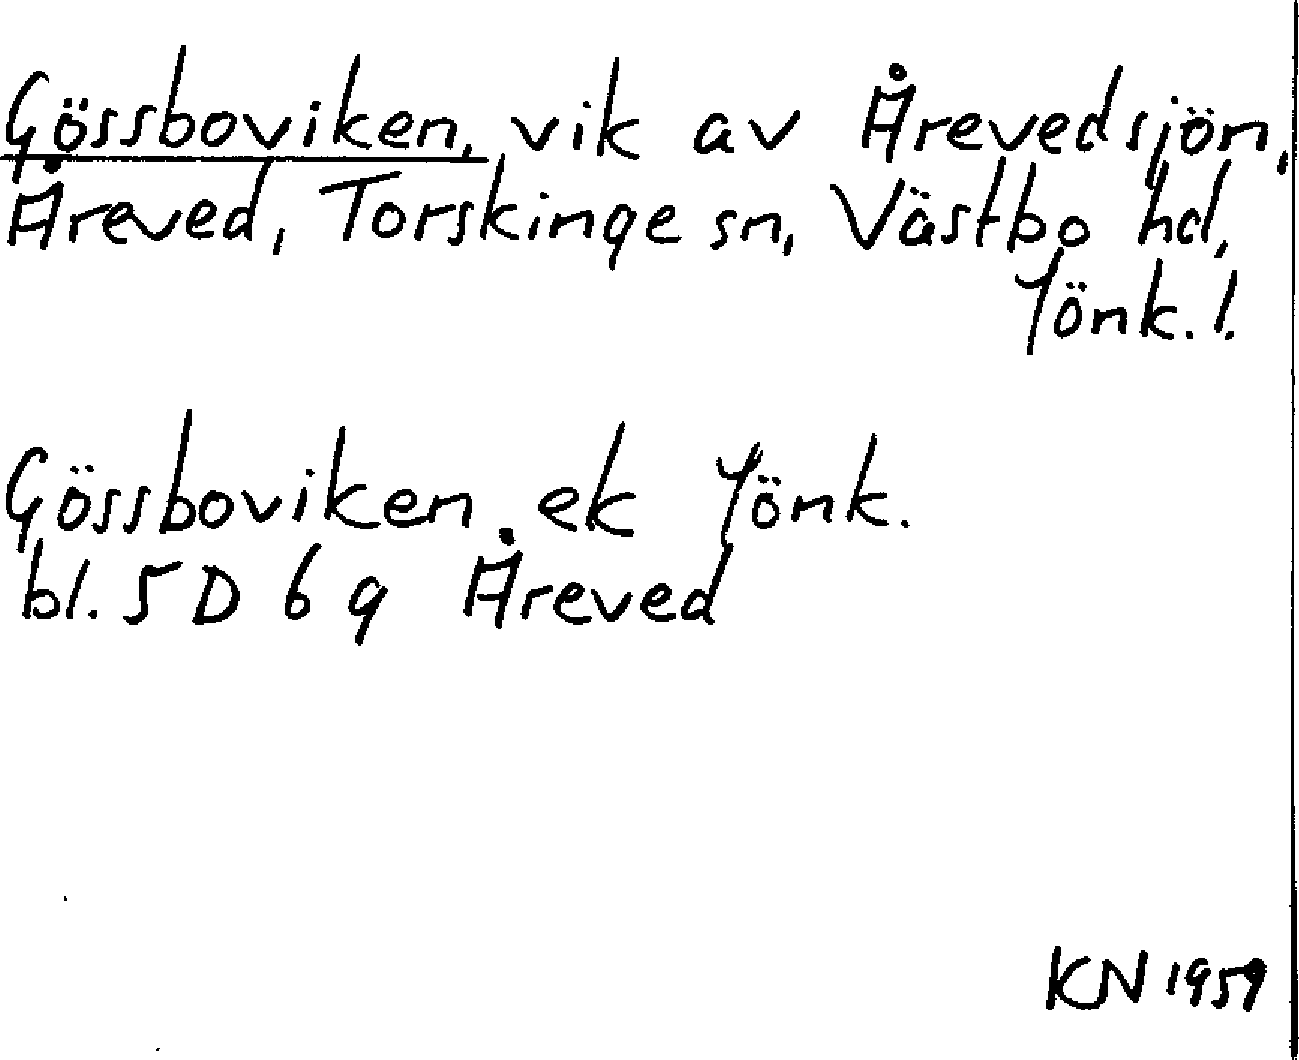 Gössboviken, vik av Årevedsjön,
Åreved, Torskinge sn, Västbo hd,
Jönk. l.
Gössboviken. ek Jönk.
bl. 5 D 6 g Åreved
KN 1959